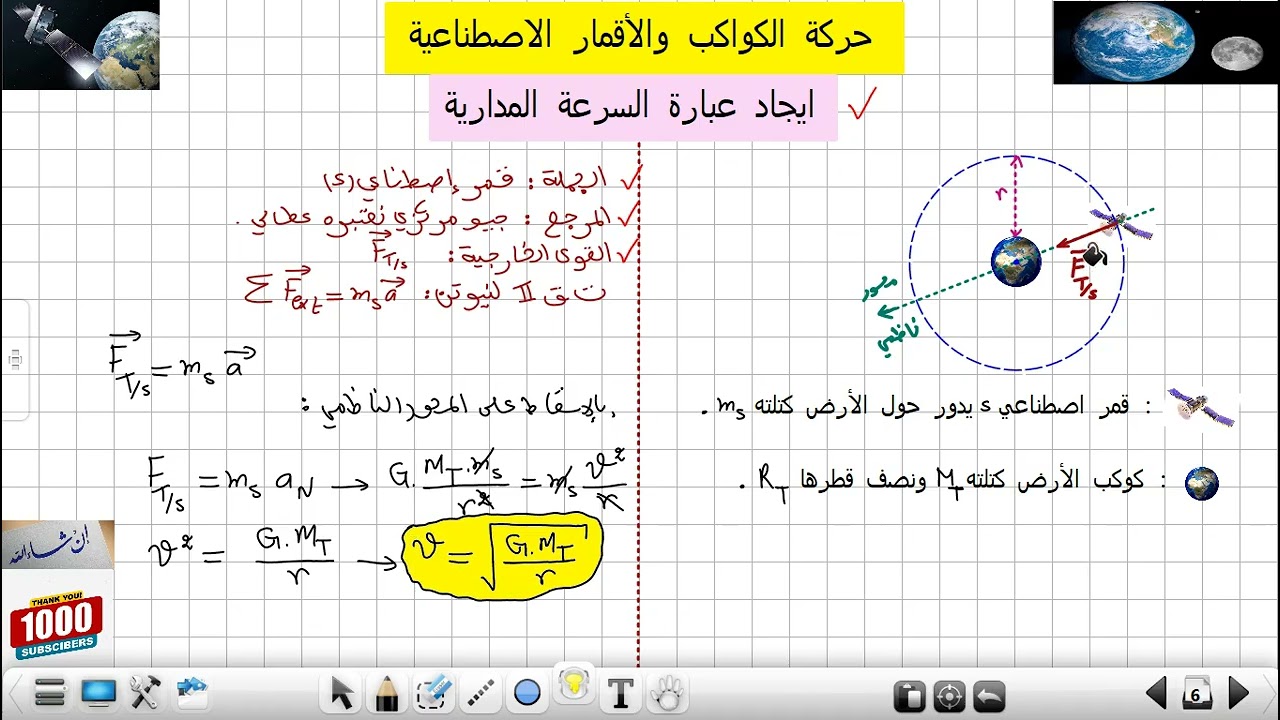 حركة الكواكب والأقمار الاصطناعية
ايجاد عبارة السرعة المدارية ✓
✓ الجملة : قمر إصطناعي (s)
✓ المرجع : جيو مركزي نعتبره عطالي .
✓ القوى الخارجية : F⃗T/s
ت ق II لنيوتن : Σ F⃗ext = ms a⃗
F⃗T/s = ms a⃗
بالإسقاط على المحور الناظمي :
FT/s = ms aN → G. MT.ms / r² = ms v²/r
v² = G.MT / r → v = √(G.MT / r)
r
F⃗T/s
محور
ناظمي
: قمر اصطناعي s يدور حول الأرض كتلته ms .
: كوكب الأرض كتلته MT ونصف قطرها RT .
إن شاء الله
THANK YOU!
1000
SUBSCIBERS
T
6